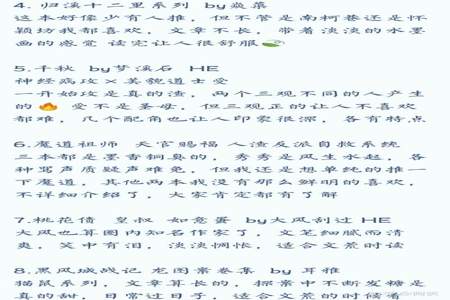 4. 归溪十二里系列 by焱蕖
这本好像少有人推，但不管是南柯巷还是怀
颖坊我都喜欢，文章不长，带着淡淡的水墨
画的感觉 读完让人很舒服🍃
5.千秋 by梦溪石 HE
神经病攻×美貌道士受
一开始攻是真的渣，两个三观不同的人产生
的🔥 受不是圣母，但三观正的让人不喜欢
都难，几个配角也让人印象很深，各有特点
6.魔道祖师 天官赐福 人渣反派自救系统
三本都是墨香铜臭的，秀秀是风生水起，各
种骂声质疑声难免，但我还是想单纯的推一
下魔道，其他两本我没有那么鲜明的喜欢，
不详细介绍了，大家肯定都有了解
7.桃花债 皇叔 如意蛋 by大风刮过HE
大风也算圈内知名作家了，文笔细腻而清
爽，笑中有泪，淡淡惆怅，适合文荒时读
8.黑风城战记 龙图案卷集 by 耳雅
猫鼠系列，文章算长的，探案中不断发糖是
真的甜，日常过日子，适合文荒的时候看